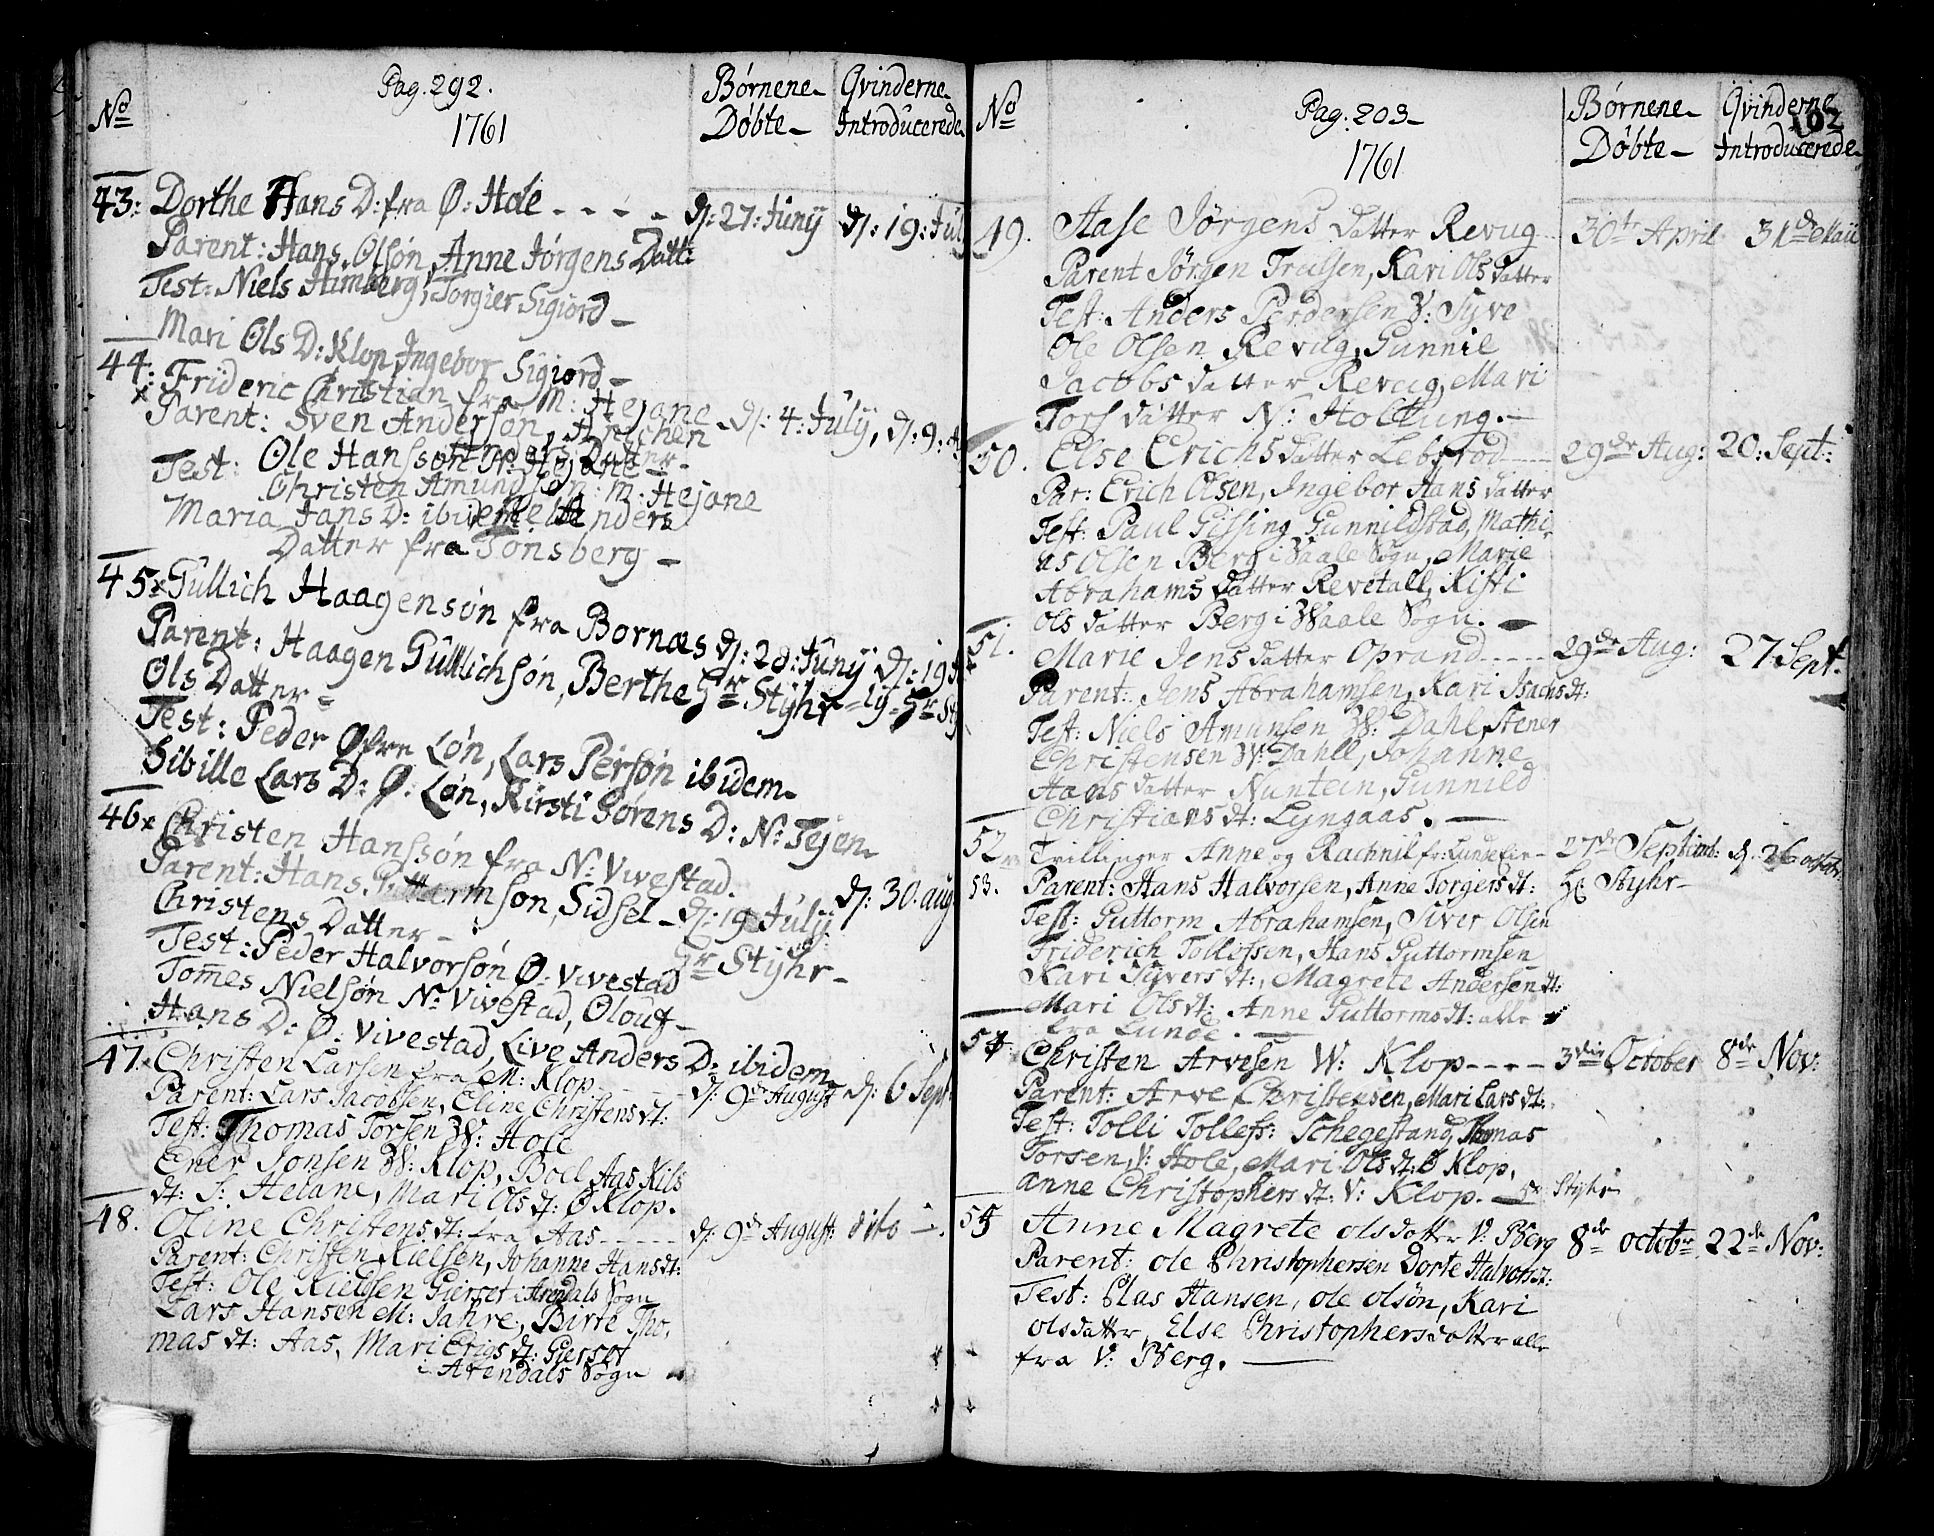 Pag. 292.
Børnene
Qvinderne
No
1761
Døbte
Introducerede
43: Dorthe Hans D: fra Ø: Hole - - - - d: 27: Juny d: 19: Jul
Parent: Hans Olsøn, Anne Jørgens Datt:
Test: Niels Himberg, Torgier Sigiord
Mari Ols D: Klop, Ingebor Sigiord
44: Frideric Christian fra M: Hejane d: 4: July, d: 9:
Parent: Sven Andersøn, Anichen
Anders Datter
Test: Ole Hanssøn N: Hejane
Christen Amundsøn: M: Hejane
Maria Jans D: ibidem, Anders
Datter fra Tønsberg
45 x Gullich Haagensøn fra Bornæs d: 28: Juny d: 19
Parent: Haagen Gullichsøn, Berthe Hr Styhr ly Hr St
Ols Datter
Test: Peder Øfre Løn, Lars Persøn ibidem
Sibille Lars D: Ø. Løn, Kirsti Sørens D: N: Tejen
46 x Christen Hanssøn fra N: Vivestad.
Parent: Hans Guttormsøn, Sidsel d: 19 July d: 30. aug
Christens Datter Hr Styhr
Test: Peder Halvorsøn Ø. Vivestad
Tomes Nielsøn N: Vivestad, Olouf
Hans D: Ø. Vivestad, Live Anders D: ibidem
47. Christen Larsen fra M: Klop
Parent: Lars Jacobsen, Eline Christens dt: d: 9de August d: 6 Sept:
Test: Thomas Torsen W: Hole
Ener Jonsen W: Klop, Boel Aas Kils
dt: S: Helane, Mari Ols dt: Ø Klop.
48. Oline Christens dt: fra Aas - - - - - d: 9de August: dito
Parent: Christen Nielsen, Johanne Hans dt:
Test: Ole Nielsen Gierset i Arendals Sogn
Lars Hansen M: Jahre, Birte Tho,
mas dt: Aas, Mari Erigs dt: Gierset
i Arendals Sogn
Pag. 203
Børnene
Qvinderne
102
No
1761
Døbte
Introducerede
49. Aase Jørgens datter Revug 30te April 31de Maii
Parent Jørgen Trulsen, Kari Ols datter
Test: Anders Perdersen W: Syve
Ole Olsen Revug, Gunnil
Jacobs datter Revug, Mari
Tors datter N: Holtung.
50. Else Erichs datter Lebsrod 29de Aug: 20: Sept:
Par: Erich Olsen, Ingebor Hans datter
Test: Paul Gissing, Gunnildstad, Mathi,
as Olsen Berg i Vaale Sogn, Marie
Abrahams datter Revetall, Kisti
Ols datter Berg i Waale Sogn.
51. Marie Jens datter Oprand - - - - 29de Aug: 27 Sept.
Parent: Jens Abrahamsen, Kari Isachs dt:
Test: Niels Amunsen W: Dahl, Stener
Christensen W: Dahll, Johanne
Hans datter Nuntein, Gunnild
Christians dt: Lyngaas.
52 Tvillinger Anne og Rachnil fr: Lunde 27de Septem: d. 26 octobr.
53. Parent: Hans Halvorsen, Anne Torgiers dt: Hr Styhr
Test: Guttorm Abrahamsen, Siver Olsen
Friderich Tollefsen, Hans Guttormsen
Kari Syvers dt:, Magrete Andersen dt:
Mari Ols dt: Anne Guttorms dt: alle
fra Lunde.
54. Christen Arvesen W: Klop - - - - 3die October 8de Nov:
Parent: Arve Christensen, Mari Lars dt:
Test: Tolli Tollefs: Schegestand, Thomas
Torsen, V: Hole, Mari Ols dt: Ø Klop,
Anne Christophers dt: V: Klop. Hr Styhr
55 Anne Magrete olsdatter V: Berg 8de octobr 22de Nov:
Parent: ole Christophersen Dorte Halvors dt:
Test: Clas Hansen, ole olsøn, Kari
olsdatter, Else Christophersdatter alle
fra V: Berg.